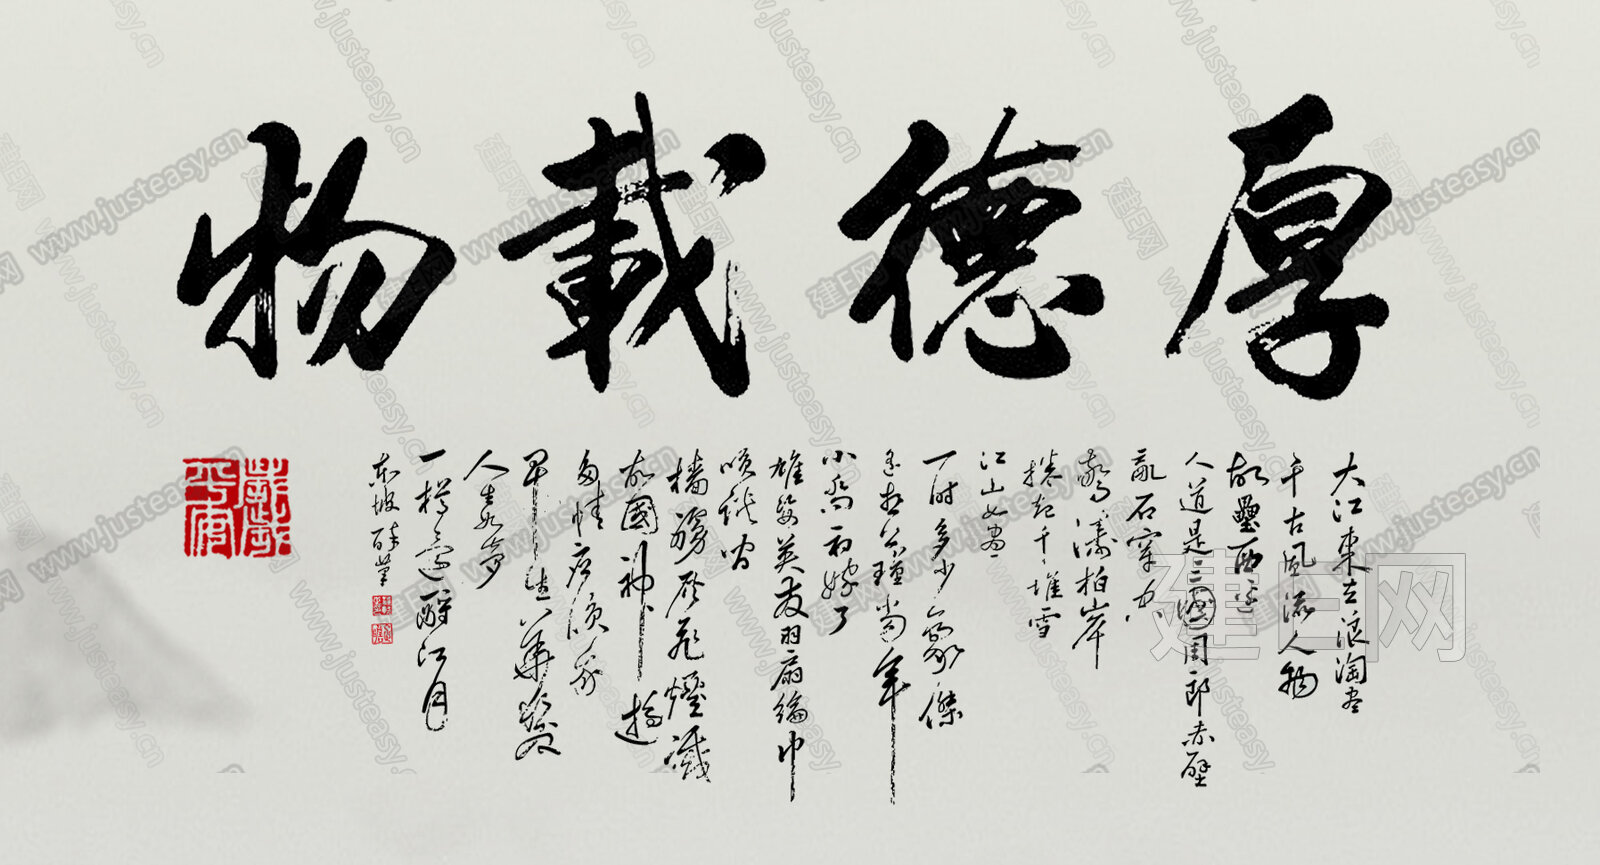 厚德載物
大江東去浪淘盡
千古風流人物
故壘西邊
人道是三國周郎赤壁
亂石穿空
驚濤拍岸
捲起千堆雪
江山如畫
一時多少豪傑
遙想公瑾當年
小喬初嫁了
雄姿英發羽扇綸巾
咲談間
檣艣灰飛煙滅
故國神遊
多情應咲我
早生華髮
人生如夢
一樽還酹江月
東坡
建E网
www.justeasy.cn